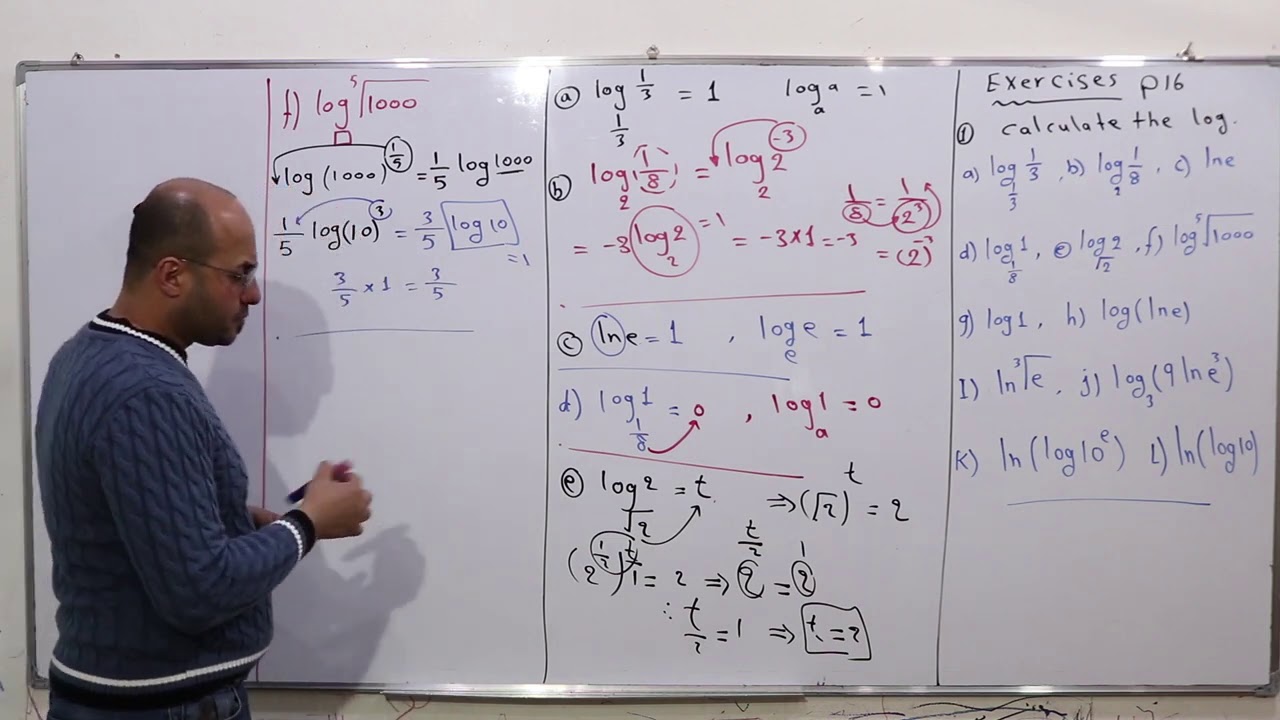 f) log ⁵√1000
log(1000)^(1/5) = 1/5 log 1000
1/5 log(10)^3 = 3/5 log10 = 1
3/5 × 1 = 3/5
ⓐ log_(1/3) 1/3 = 1 log_a a = 1
ⓑ log_2 (1/8) = log_2 2^-3
1/8 = 1/(2^3)
= -3 log_2 2 = 1 = -3×1 = -3 = (2)^-3
ⓒ lne = 1 , log_e e = 1
d) log_(1/8) 1 = 0 , log_a 1 = 0
ⓔ log_√2 2 = t ⇒ (√2)^t = 2
(2^(1/2))^(t/1) = 2 ⇒ 2^(t/2) = 2^1
∴ t/2 = 1 ⇒ t = 2
Exercises p16
① calculate the log.
a) log_(1/3) 1/3 , b) log_2 1/8 , c) lne
d) log_(1/8) 1 , ⓔ log_√2 2 , f) log ⁵√1000
g) log1 , h) log(lne)
I) ln ³√e , j) log_3 (9 ln e^3)
K) ln(log10^e) L) ln(log10)